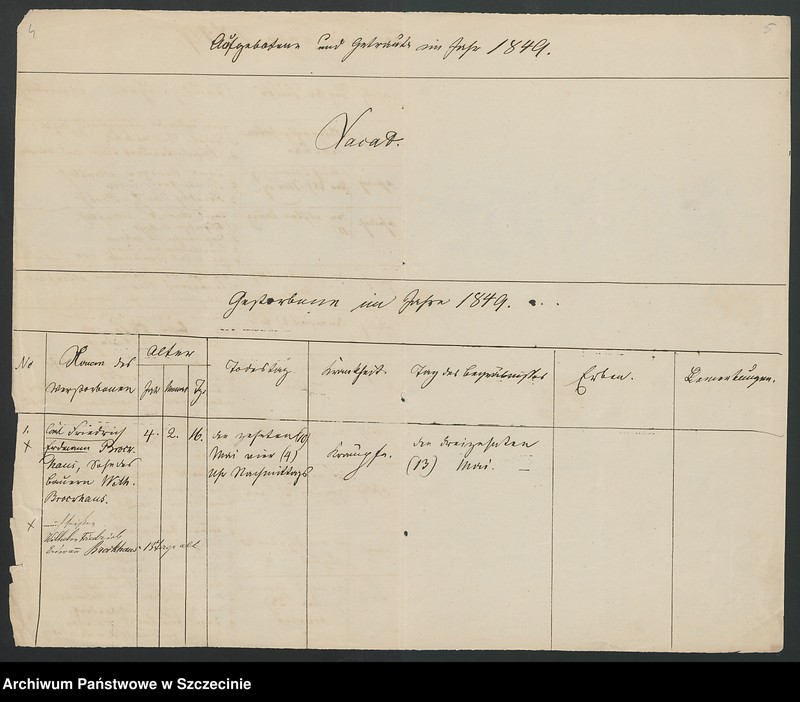 4
5
Aufgebotene und Getraute im Jahr 1849.
Vacat.
Gestorbene im Jahre 1849.
No
Namen des
Verstorbenen
Alter
Jahr
Monat
Tg.
Todestag
Krankheit.
Tag des Begräbnisses
Erben.
Bemerkungen.
1.
Carl Friedrich
Erdmann Brock-
haus, Sohn des
Bauern Wilh.
Brockhaus.
4.
2.
16.
den zehnten (10)
Mai vier (4)
Uhr Nachmittags
Krämpfe.
den dreizehnten
(13) Mai.
Wilhelm Friedrich
Brockhaus 15 Tage alt
Archiwum Państwowe w Szczecinie